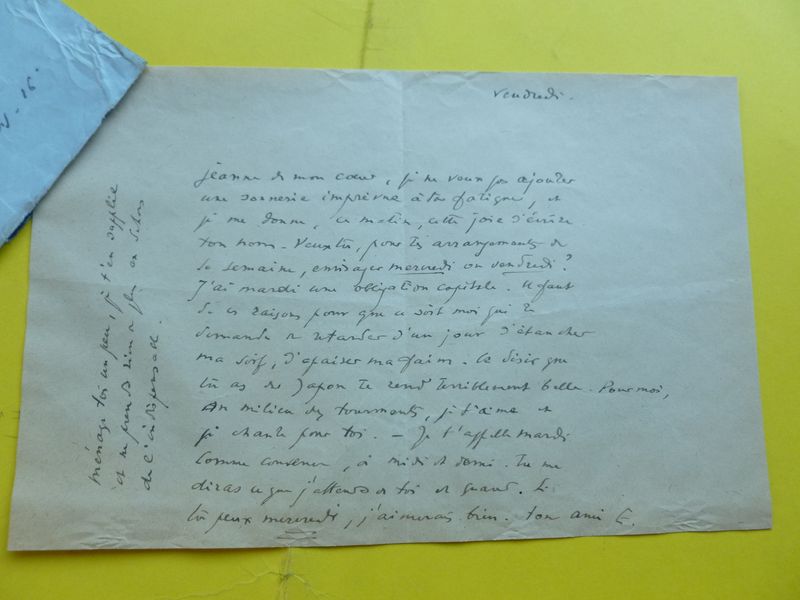 vendredi.
jeanne de mon cœur, je ne veux pas ajouter
une sonnerie imprévue à ta fatigue, et
je me donne, ce matin, cette joie d'écrire
ton nom - Veux-tu, pour tes arrangements de
la semaine, envisager mercredi ou vendredi ?
J'ai mardi une obligation capitale. Il faut
de ces raisons pour que ce soit moi qui te
demande de retarder d'un jour d'étancher
ma soif, d'apaiser ma faim. Ce désir que
tu as du Japon te rend terriblement belle. Pour moi,
Au milieu des tourments, je t'aime et
je chante pour toi. - Je t'appelle mardi
comme convenu, à midi et demi. Tu me
diras ce que j'attends de toi et quand. Si
tu peux mercredi, j'aimerais bien. ton ami E.
ménage toi un peu, je t'en supplie
et ne prends rien de plus en dehors
de l'indispensable.
- 16.